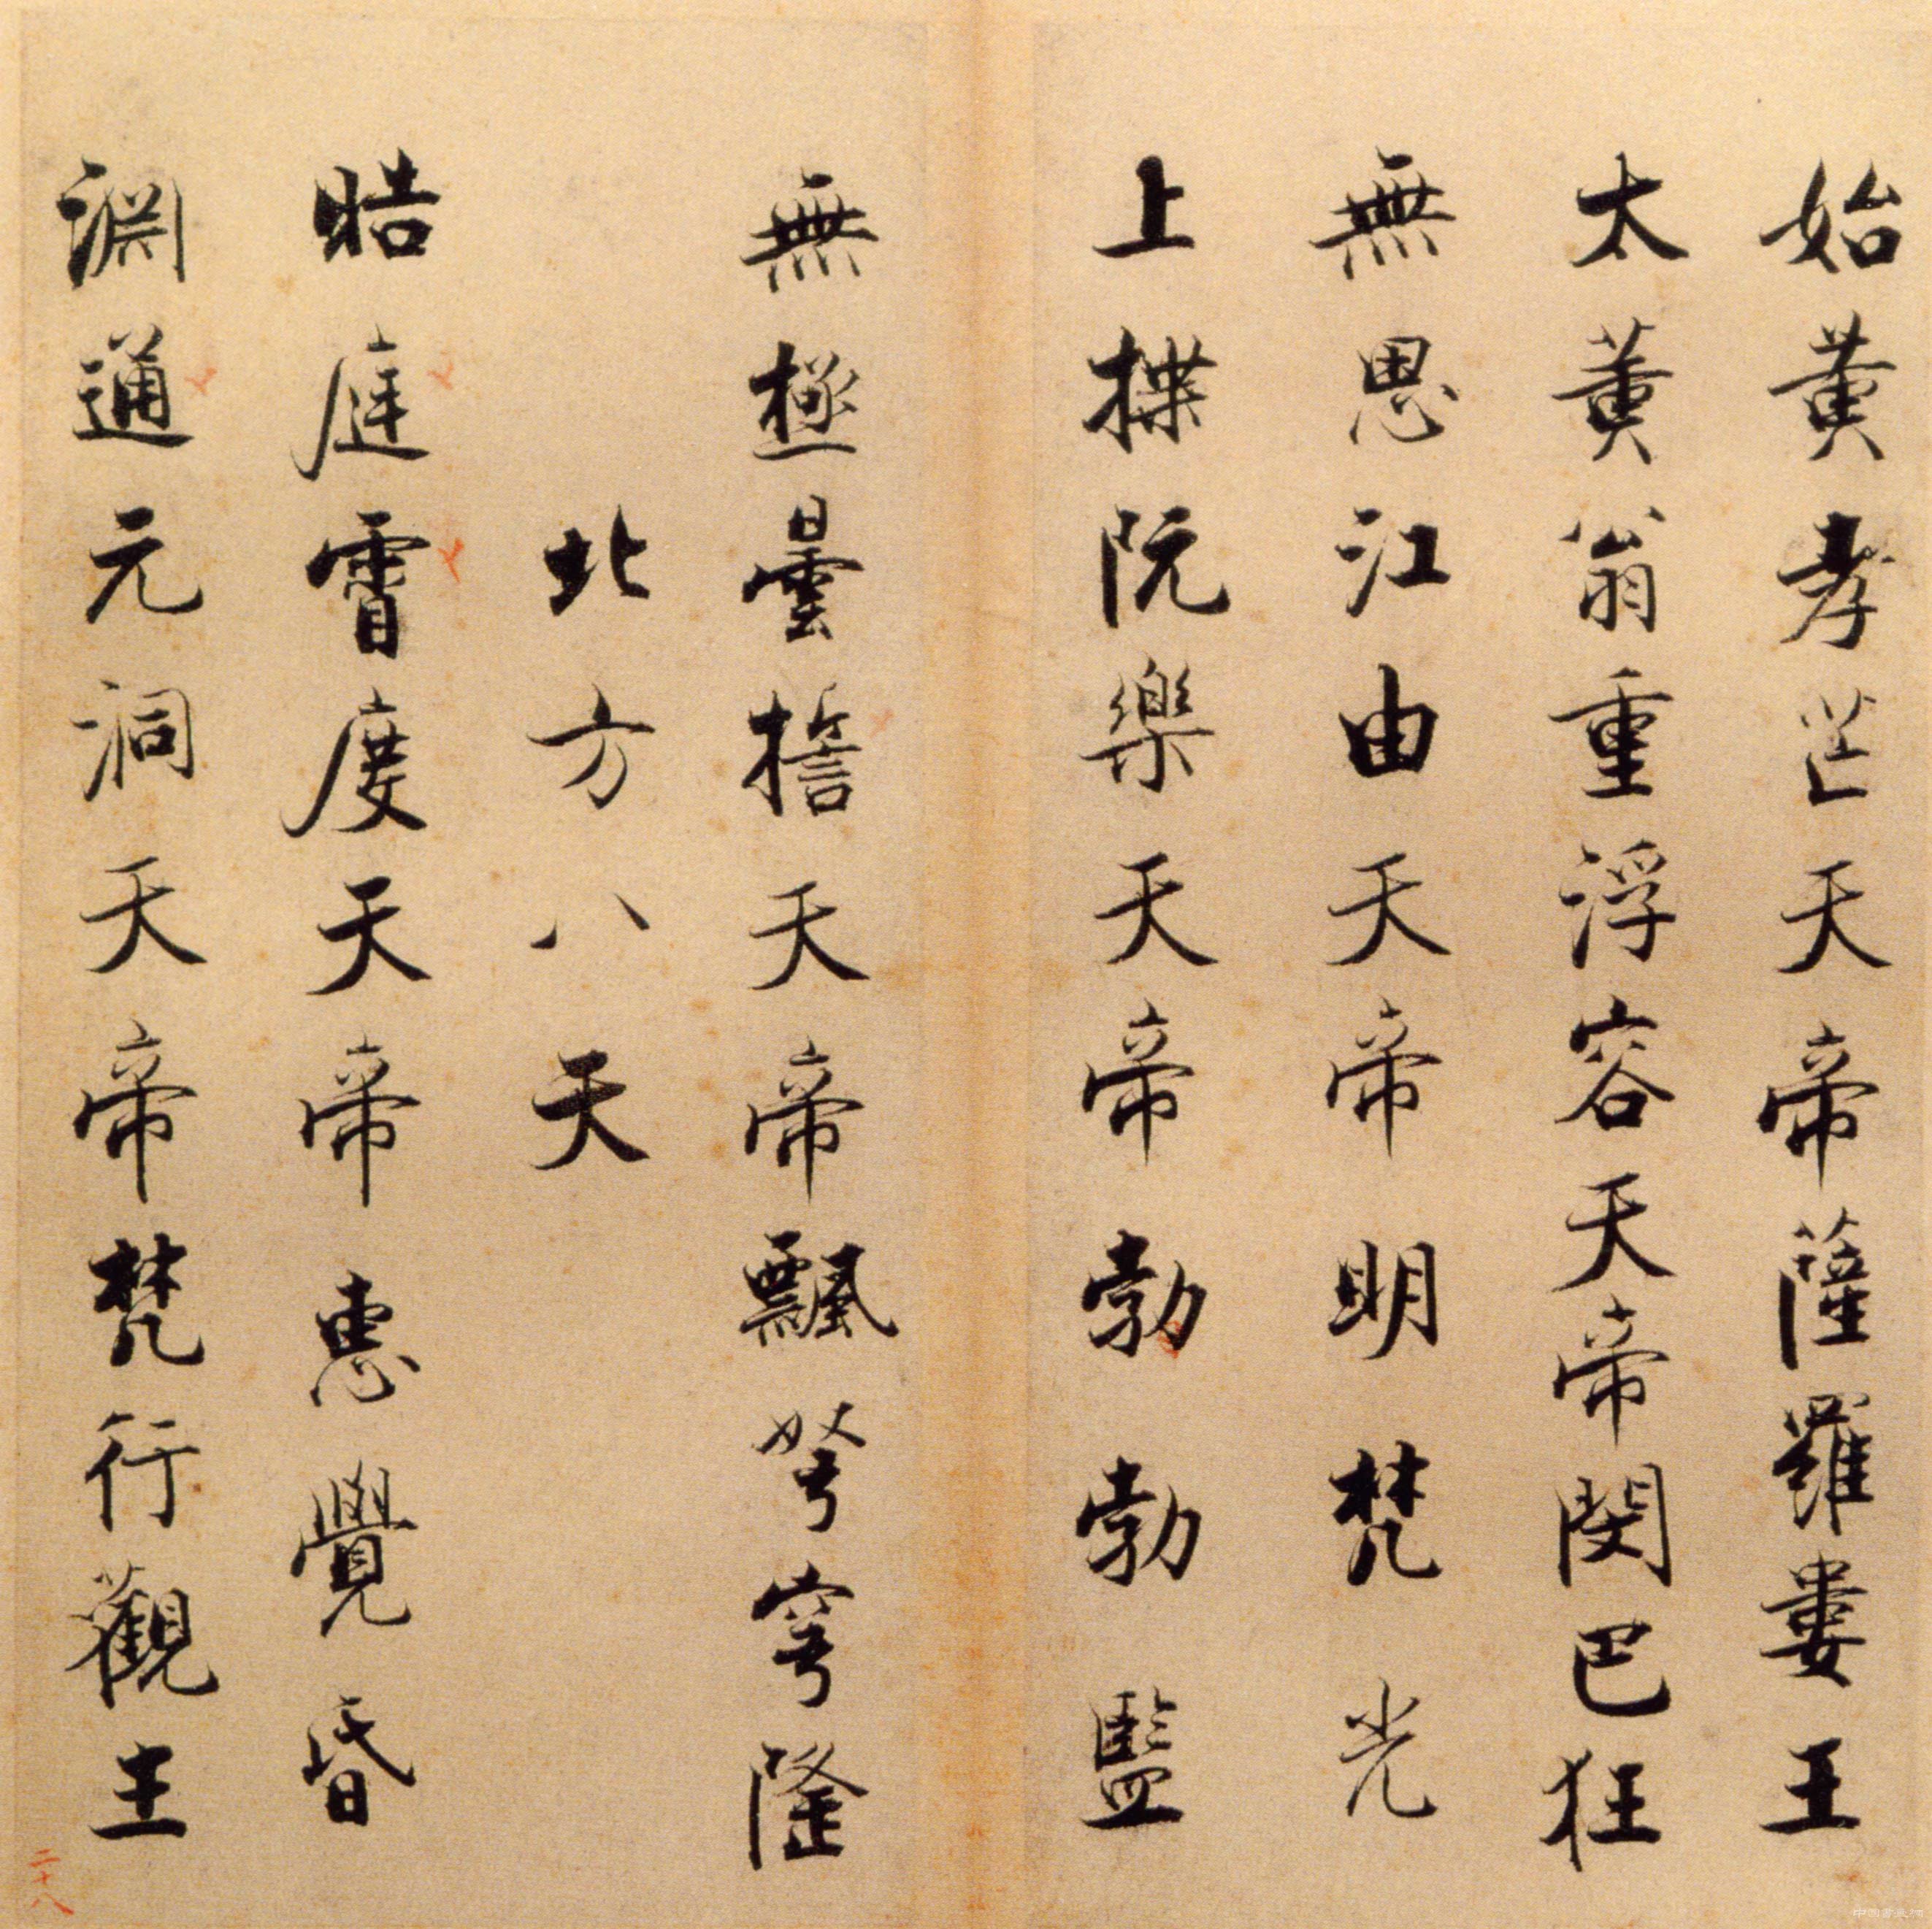 始黄孝芒天帝薩羅婁王
太黄翁重浮容天帝閔巴狂
無思江由天帝明梵光
上揲阮樂天帝勃勃監
無極曇誓天帝飄弩穹隆
北方八天
皓庭霄度天帝恵覺昏
淵通元洞天帝梵行觀王
二十八